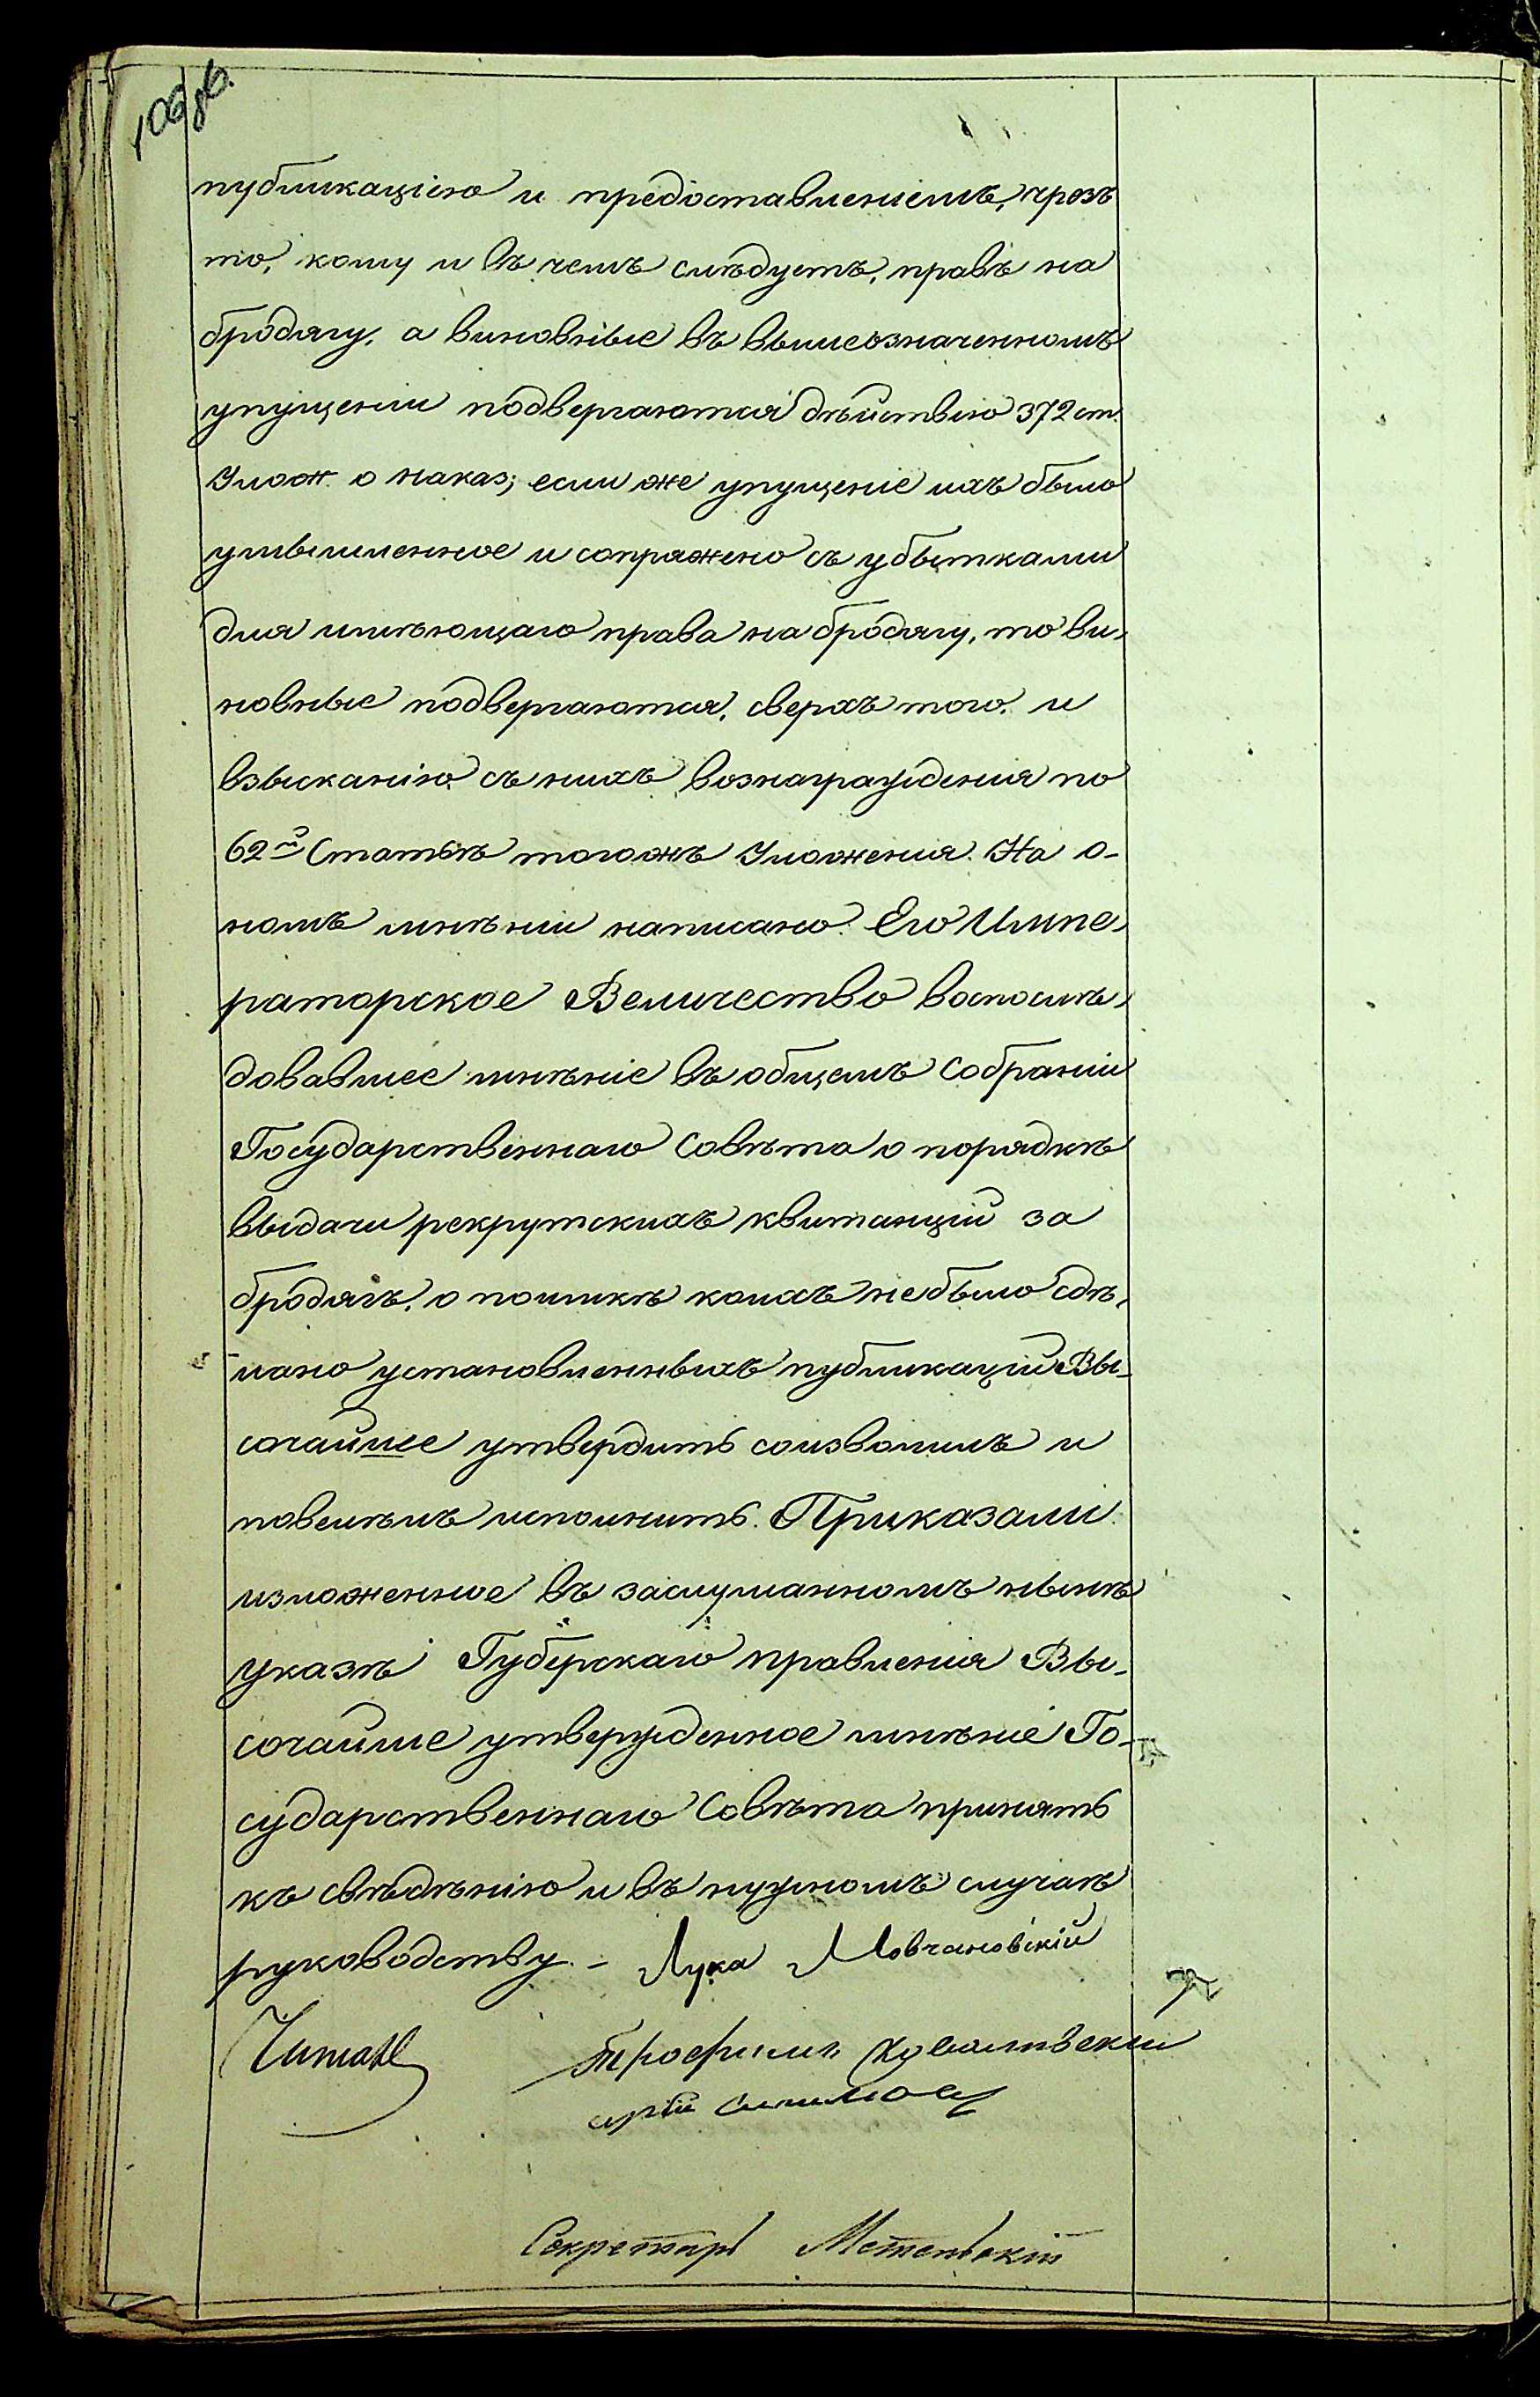 106 об.
публикаціею и предоставленіемъ, чрезъ
то, кому и въ чемъ слѣдуетъ, правъ на
бродягу, а виновные въ вышеозначенномъ
упущеніи подвергаются дѣйствію 372 ст.
Улож. о наказ; если же упущеніе ихъ было
умышленное и сопряжено съ убытками
для имѣющаго права на бродягу, то ви-
новные подвергаются, сверхъ того, и
взысканію съ нихъ вознагражденія по
62й Статьѣ тогожъ Уложенія. На о-
номъ мнѣніи написано: Его Импе-
раторское Величество воспослѣ-
довавшее мнѣніе въ общемъ Собраніи
Государственнаго Совѣта о порядкѣ
выдачи рекрутскихъ квитанцій за
бродягъ, о поимкѣ коихъ не было сдѣ-
лано установленныхъ публикацій Вы-
сочайше утвердить соизволилъ и
повелѣлъ исполнить. Приказали:
изложенное въ заслушанномъ нынѣ
указѣ Губерскаго правленія Вы-
сочайше утвержденное мнѣніе Го-
сударственнаго Совѣта принять
къ свѣдѣнію и въ нужномъ случаѣ
руководству. – Лука Мовчановскій
Трофимъ
Секретарь